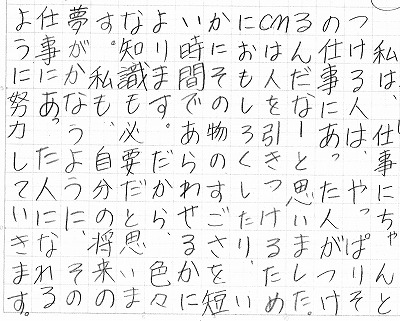 私は、仕事にちゃんと
つける人は、やっぱりそ
の仕事にあった人がつけ
るんだなーと思いました。
CMは人を引きつけるため
におもしろくしたり、い
かにその物のすごさを短
い時間であらわせるかに
よります。だから、色々
な知識も必要だと思いま
す。私も、自分の将来の
夢がかなうように、その
仕事にあった人になれる
ように努力していきます。